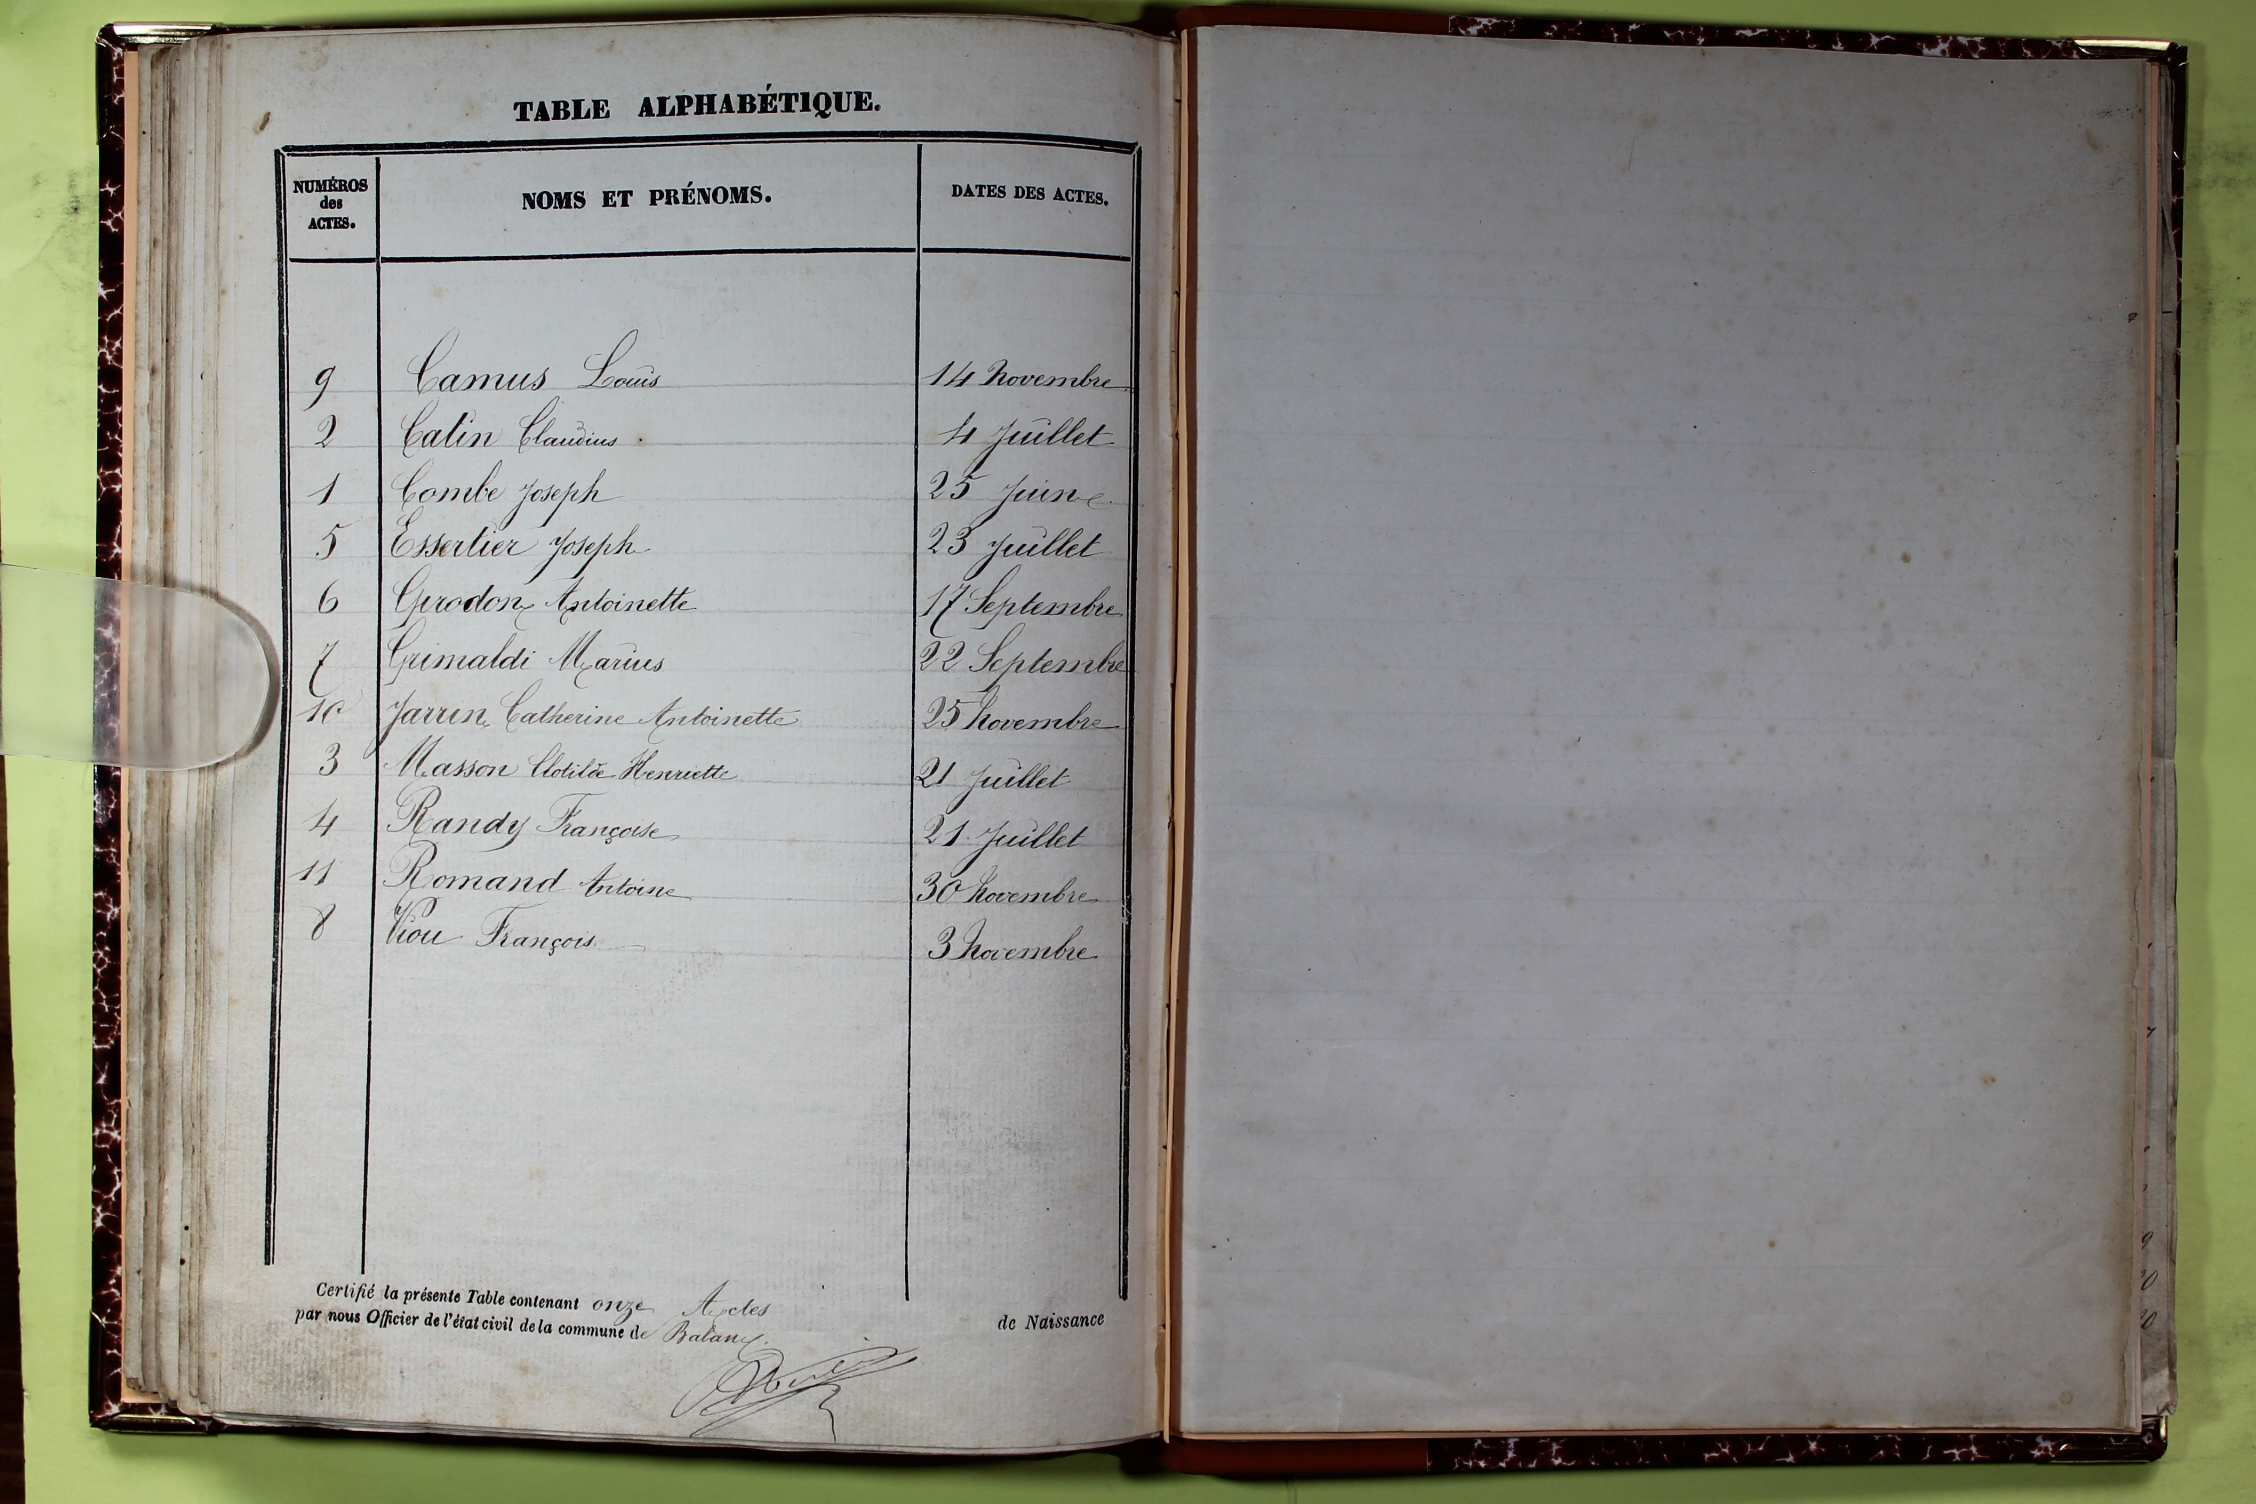 TABLE ALPHABÉTIQUE.
NUMÉROS des ACTES. NOMS ET PRÉNOMS. DATES DES ACTES.
9 Camus Louis 14 Novembre
2 Catin Claudius 4 Juillet
1 Combe Joseph 25 Juin
5 Essertier Joseph 23 Juillet
6 Girodon Antoinette 17 Septembre
7 Grimaldi Marius 22 Septembre
10 Jarrin Catherine Antoinette 25 Novembre
3 Masson Clotilde Henriette 21 Juillet
4 Randy Françoise 21 Juillet
11 Romand Antoine 30 Novembre
8 Viou François 3 Novembre
Certifié la présente Table contenant onze Actes de Naissance
par nous Officier de l'état civil de la commune de Balan